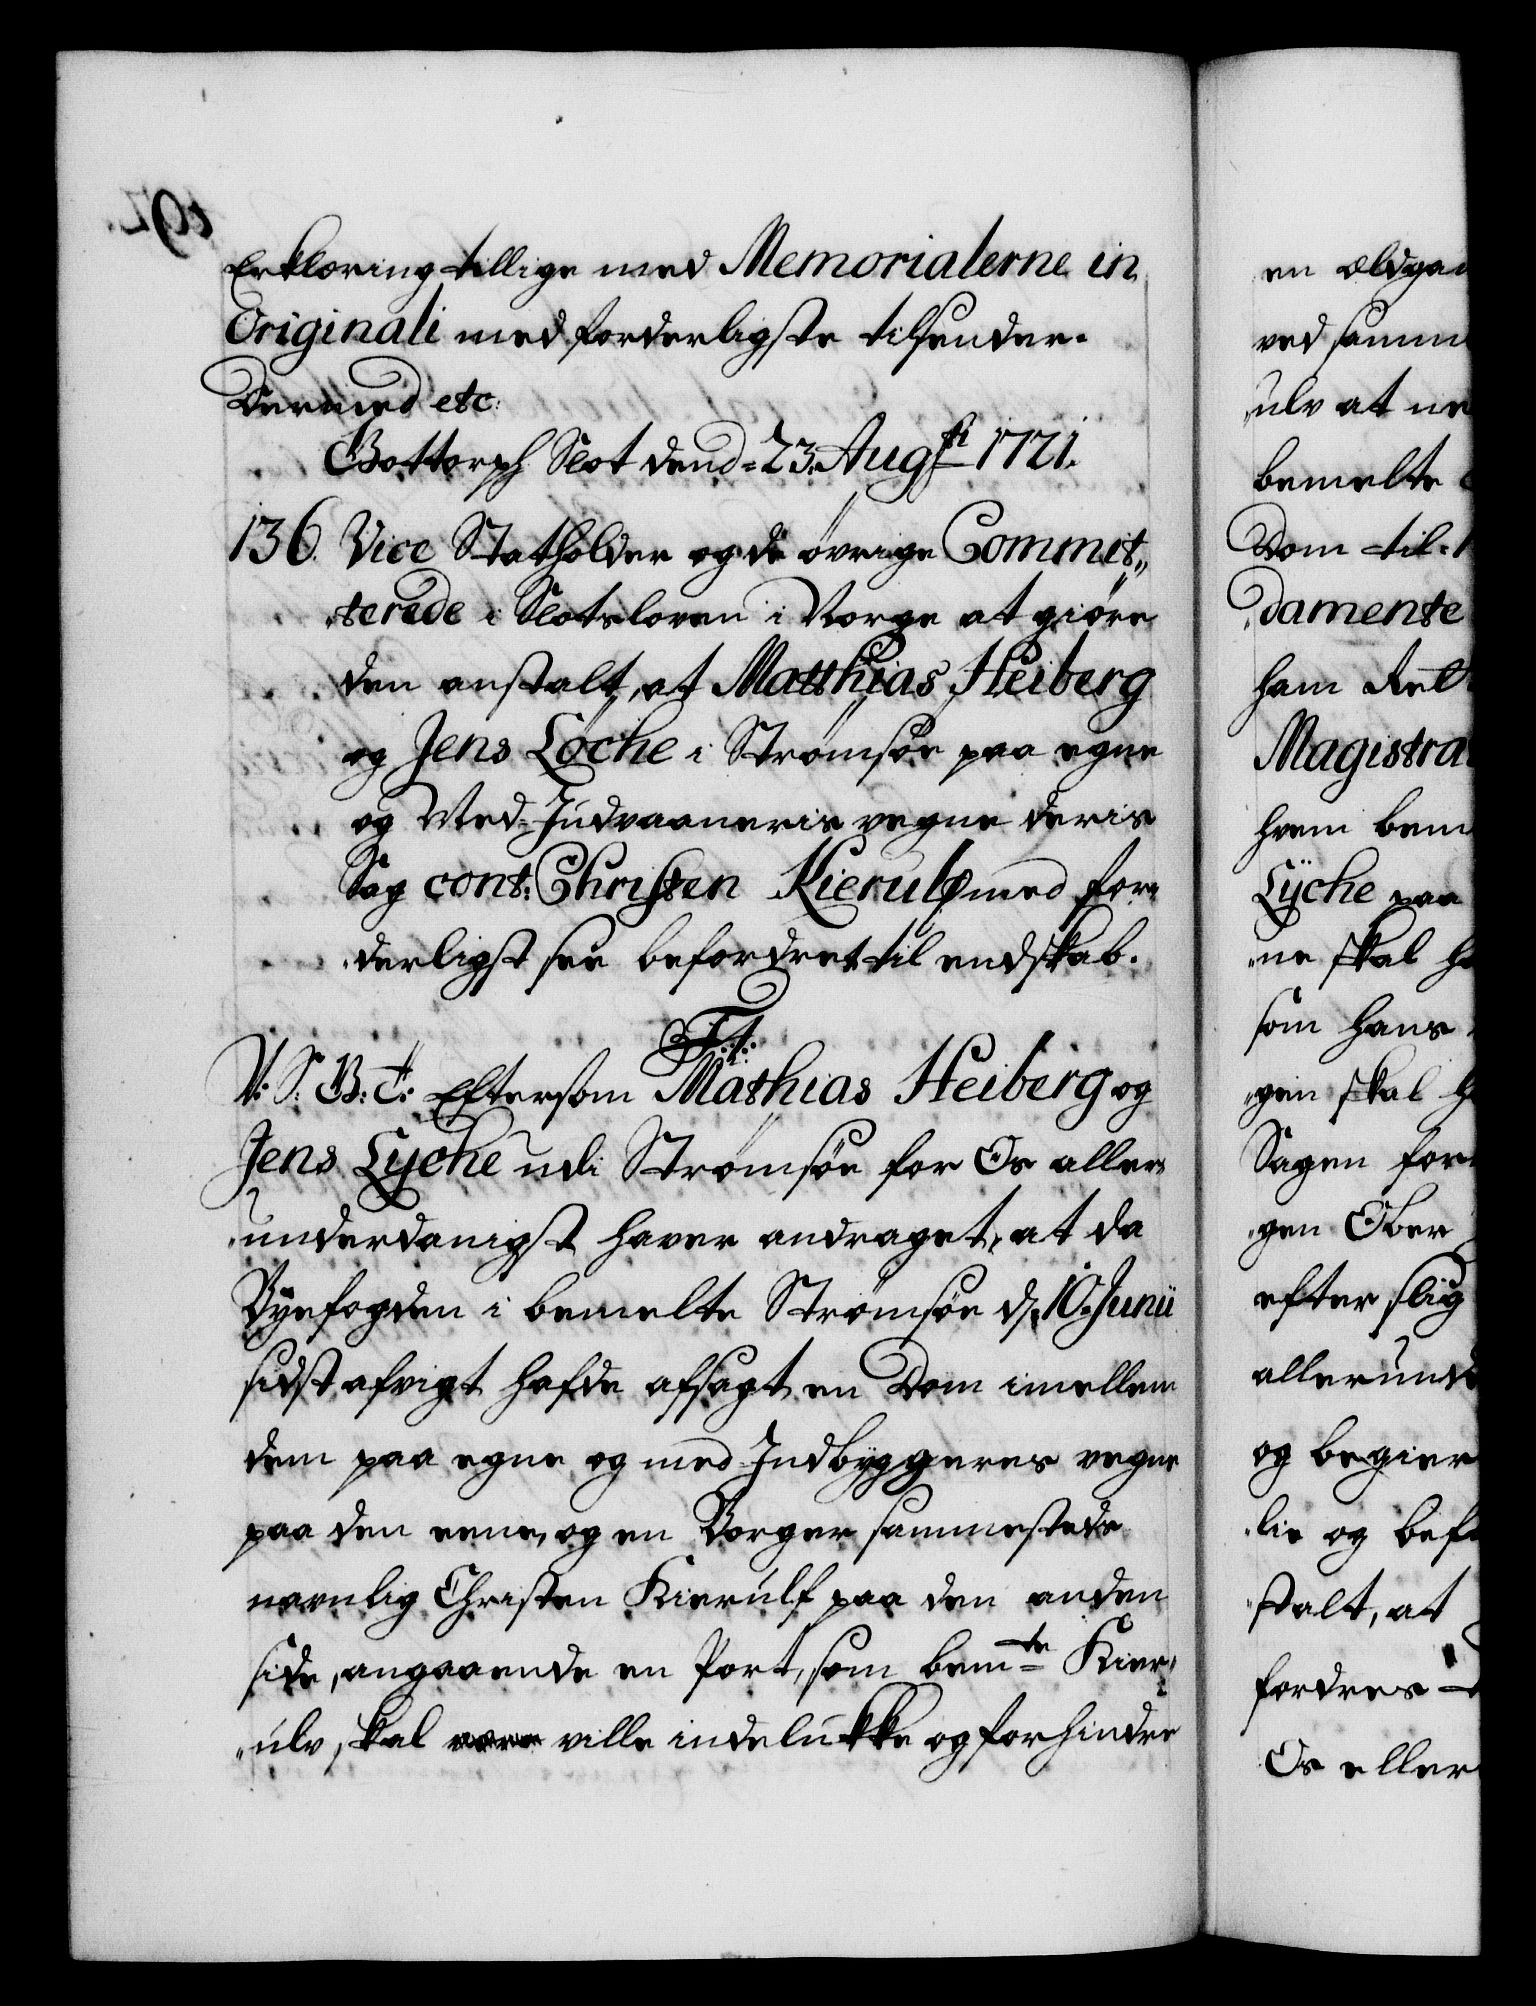 Erklæring tillige med Memorialerne in
Originali med forderligste tilsender.
Dermed etc:
Gottorph Slot dend 23. Augsti 1721.
136. Vice Statholder og de øvrige Commit„
„terede i Slotsloven i Norge at giøre
den anstalt, at Matthias Heiberg
og Jens Löche i Strømsøe paa egne
og Med-Indvaaneris vegne deris
Sag cont: Christen Kierulf med for„
„derligst see befordret til endskab.
F. 4.
V: S: B: T: Eftersom Mathias Heiberg og
Jens Lyche udi Strømsøe for Os aller„
„underdanigst haver andraget, at da
Byefogden i bemelte Strømsøe d. 10. Junii
sidst afvigt hafde afsagt en Dom imellem
dem paa egne og med Indbyggeres vegne
paa den eene, og en Borger sammestede
navnlig Christen Kierulf paa den anden
side, angaaende en Port, som bemte Kier„
„ulv, skal være ville indelukke og forhindre
en ældgam
ved samm
ulv at ne
bemelte
Dom til
damente
ham Ret
Magistra
hvem bem
Lÿche paa
„ne skal ha
som hans
„gen skal h
Sagen for
„gen Ober
efter slig
allerund
og begier
„lie og befa
„stalt, at
fordres
Os eller